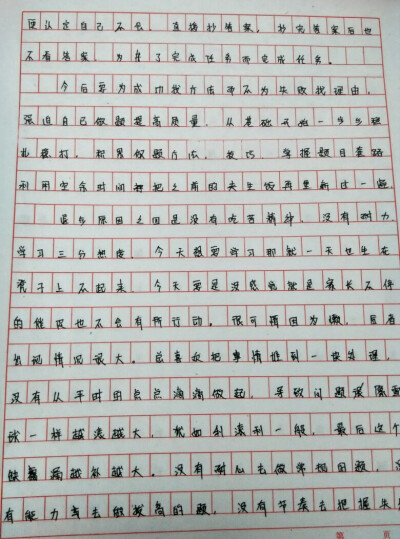 便认定自己不会，直接抄答案，抄完答案后也
不看答案，为了完成任务而完成任务。
今后要为成功找方法而不为失败找理由，
强迫自己做题提高质量，从基础开始一步步
积累做题方法、技巧，掌握题目套路
利用空余时间把之前的夹生饭再重新过一遍。
退步原因之四是没有吃苦精神，没有耐力，
学习三分热度，今天想要学习那就一天也坐在
凳子上不起来，今天要是没感觉就是家长不停
的催促也不会有所行动。很可能因为懒，
出现情况很大。总喜欢把事情推到一块处理，
没有从平时的点点滴滴做起，导致问题像滚雪
球一样越滚越大，就如利滚利一般，最后这个
缺漏越补越大。没有耐心去做常规的题，
有能力去做拔高的题，没有节奏去把握
第 页